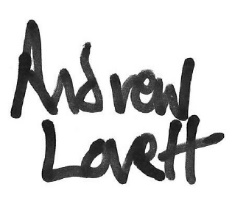 Andrew
Lovett